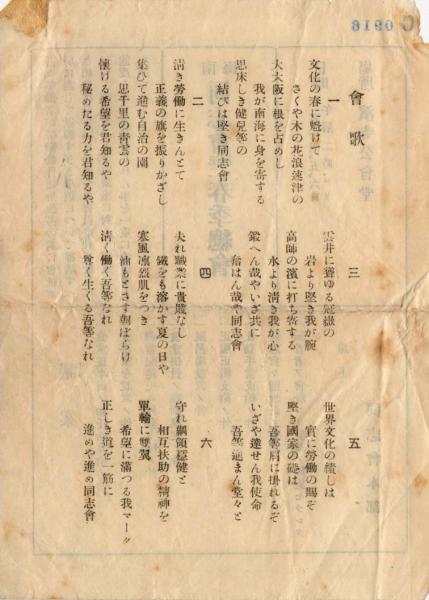 C 0916
會歌
一
文化の春に魁けて
さくや木の花浪速津の
大大阪に根を占めし
我が南海に身を寄する
思床しき健兒等の
結びは堅き同志會
二
淸き勞働に生きんとて
正義の旗を振りかざし
集ひて進む自治の園
思千里の靑雲の
懷ける希望を君知るや
秘めたる力を君知るや
三
雲井に聳ゆる冠嶽の
岩より堅き我が腕
高師の濱に打ち寄する
水より淸き我が心
鍛へん哉やいざ共に
奮はん哉や同志會
四
夫れ職業に貴賤なし
鐵をも溶かす夏の日や
寒風凛烈肌をつき
油もとざす朝ぼらけ
淸く働く吾等なれ
尊く生くる吾等なれ
五
世界文化の績しは
實に勞働の賜ぞ
堅き國家の礎は
吾等肩に掛れるぞ
いざや達せん我使命
吾等進まん堂々と
六
守れ綱領穩健と
相互扶助の精神を
單輪に雙翼
希望に滿つる我マーク
正しき道を一筋に
進めや進め同志會